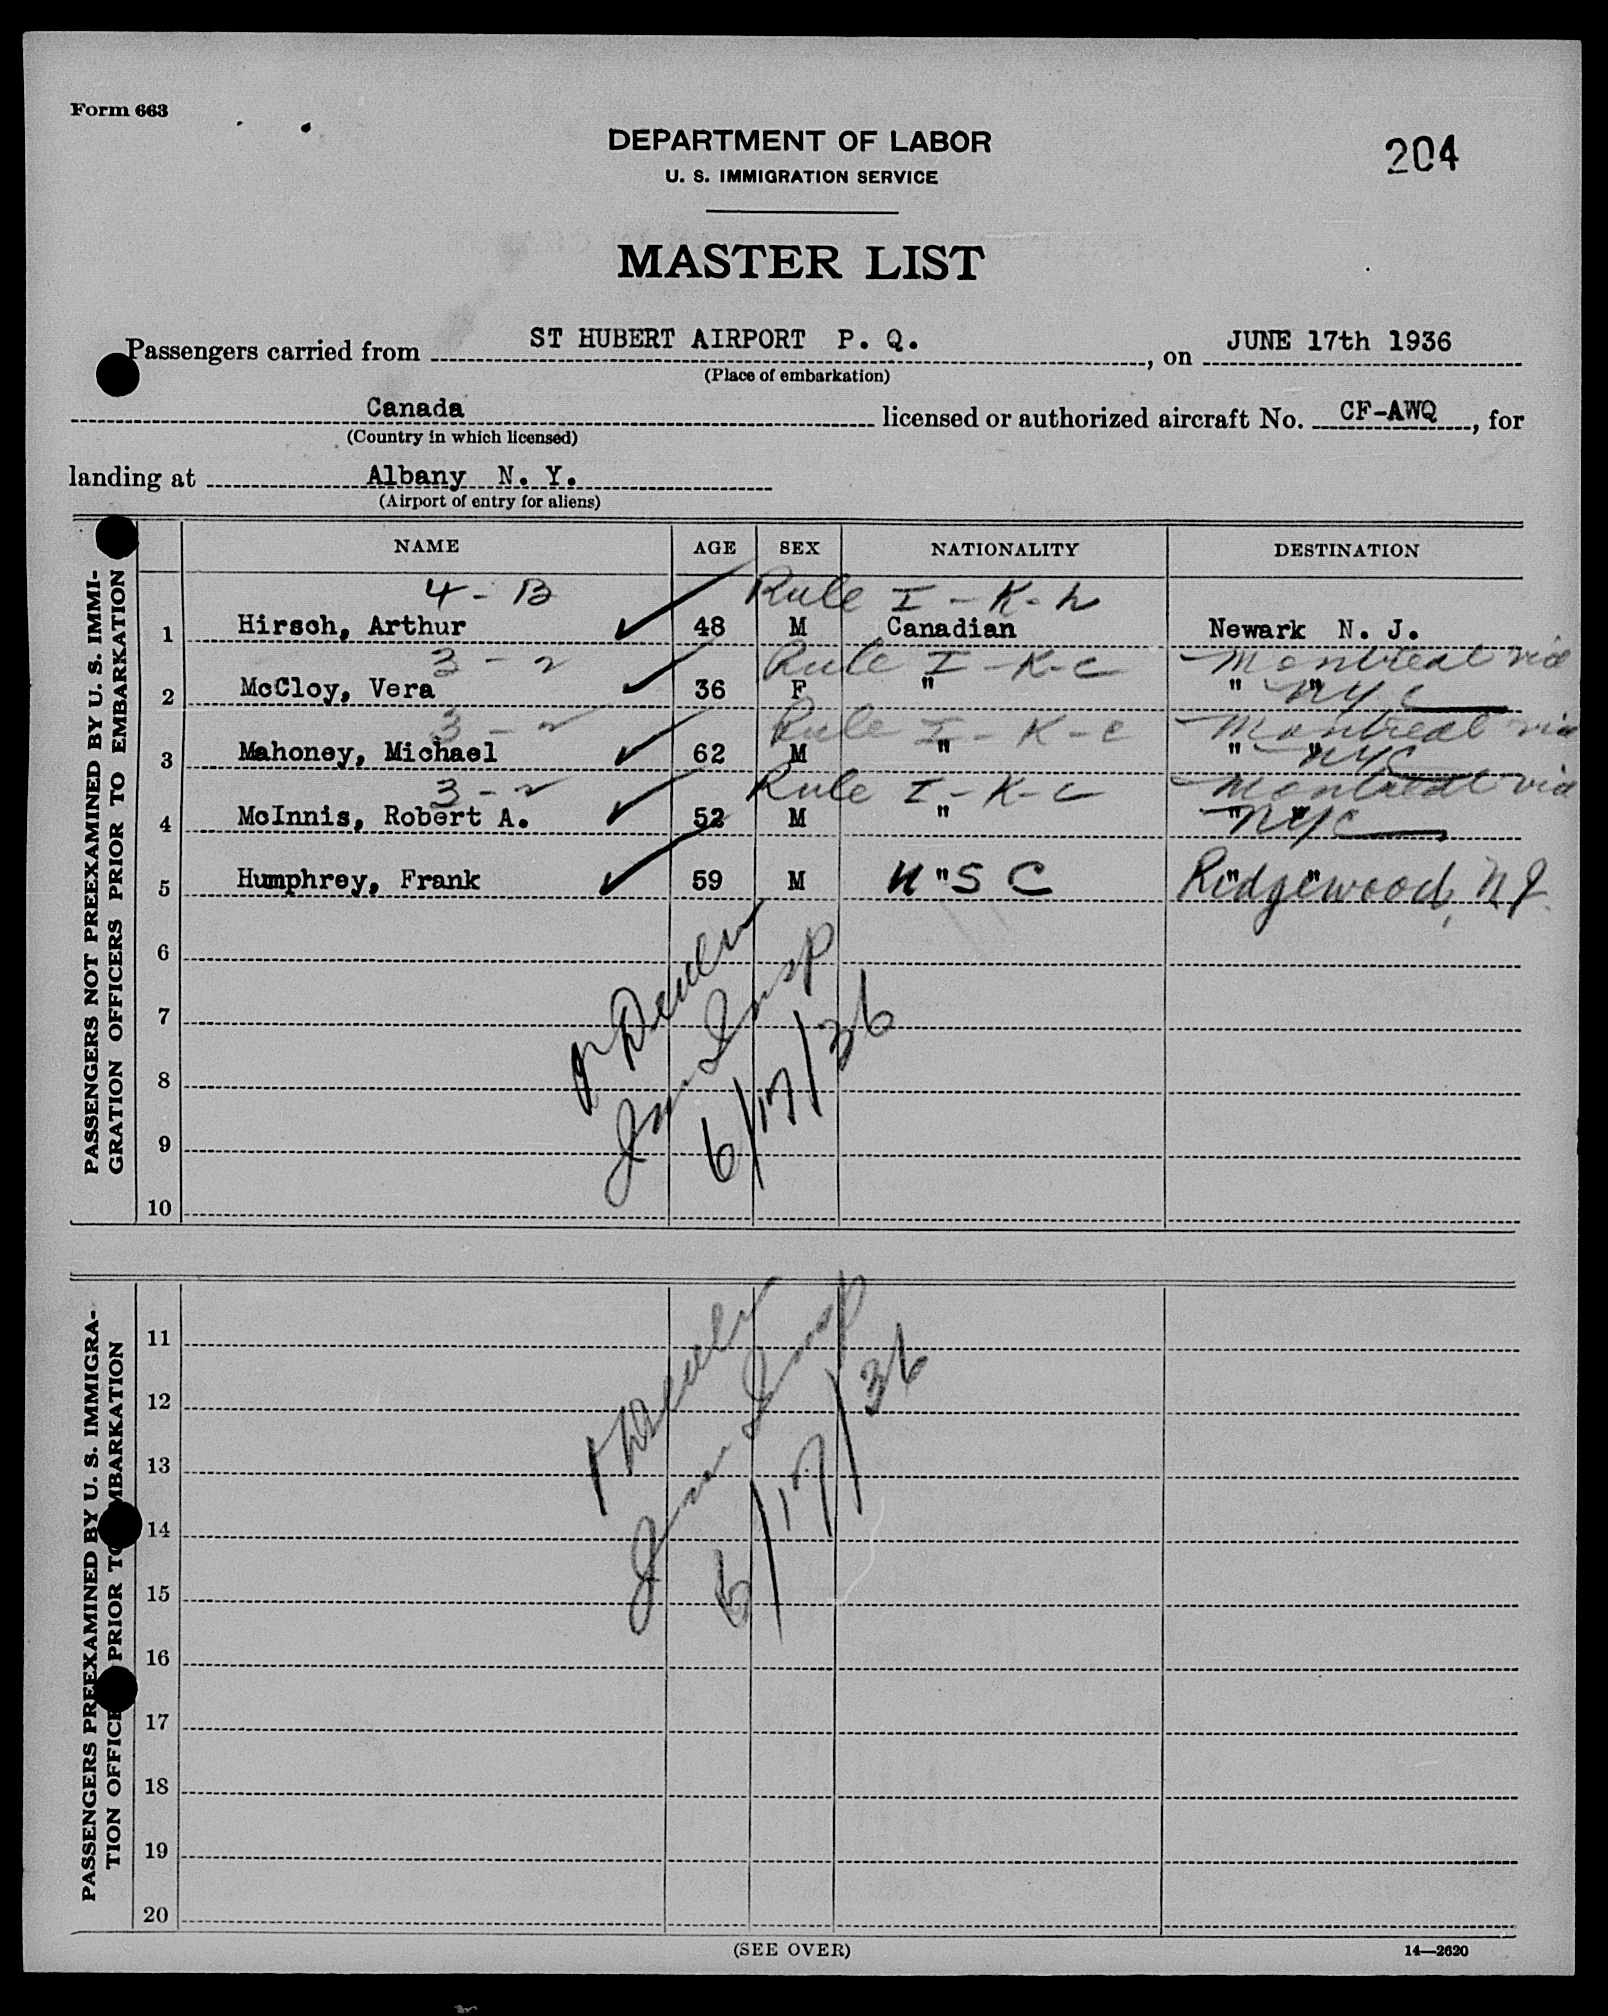 Form 663
204
DEPARTMENT OF LABOR
U. S. IMMIGRATION SERVICE
MASTER LIST
Passengers carried from ST HUBERT AIRPORT P. Q., on JUNE 17th 1936
(Place of embarkation)
Canada licensed or authorized aircraft No. CF-AWQ, for
(Country in which licensed)
landing at Albany N. Y.
(Airport of entry for aliens)
PASSENGERS NOT PREEXAMINED BY U. S. IMMI-
GRATION OFFICERS PRIOR TO EMBARKATION
NAME AGE SEX NATIONALITY DESTINATION
4 - B Rule I - K - h
1 Hirsch, Arthur 48 M Canadian Newark N. J.
3 - 2 Rule I - K - c Montreal via
2 McCloy, Vera 36 F " " " NYC
3 - 2 Rule I - K - c Montreal via
3 Mahoney, Michael 62 M " " " NYC
3 - 2 Rule I - K - c Montreal via
4 McInnis, Robert A. 52 M " " " NYC
5 Humphrey, Frank 59 M " U S C " " Ridgewood, NJ
6
7
8
9
10
Imm Insp
6/17/36
PASSENGERS PREEXAMINED BY U. S. IMMIGRA-
TION OFFICE PRIOR TO EMBARKATION
11
12
13
14
15
16
17
18
19
20
Imm Insp
6/17/36
(SEE OVER)
14—2620